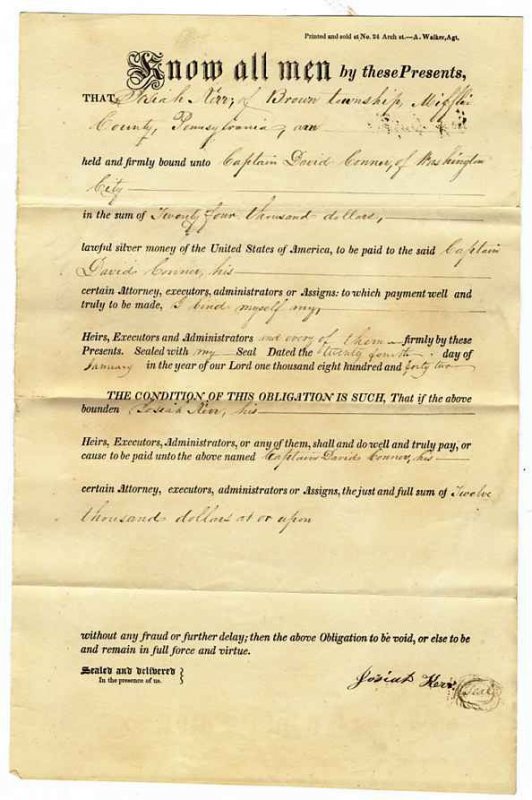 Printed and sold at No. 24 Arch st.—A. Walker, Agt.
Know all men by these Presents,
THAT Josiah Kerr, of Brown township, Mifflin
County, Pennsylvania, am
held and firmly bound unto Captain David Conner, of Washington
City
in the sum of Twenty four thousand dollars,
lawful silver money of the United States of America, to be paid to the said Captain
David Conner, his
certain Attorney, executors, administrators or Assigns: to which payment well and
truly to be made, I bind myself my,
Heirs, Executors and Administrators and every of them firmly by these
Presents. Sealed with my Seal Dated the twenty fourth day of
January in the year of our Lord one thousand eight hundred and forty two
THE CONDITION OF THIS OBLIGATION IS SUCH, That if the above
bounden Josiah Kerr, his
Heirs, Executors, Administrators, or any of them, shall and do well and truly pay, or
cause to be paid unto the above named Captain David Conner, his
certain Attorney, executors, administrators or Assigns, the just and full sum of Twelve
thousand dollars at or upon
without any fraud or further delay; then the above Obligation to be void, or else to be
and remain in full force and virtue.
Sealed and delivered }
In the presence of us.
Josiah Kerr
Seal